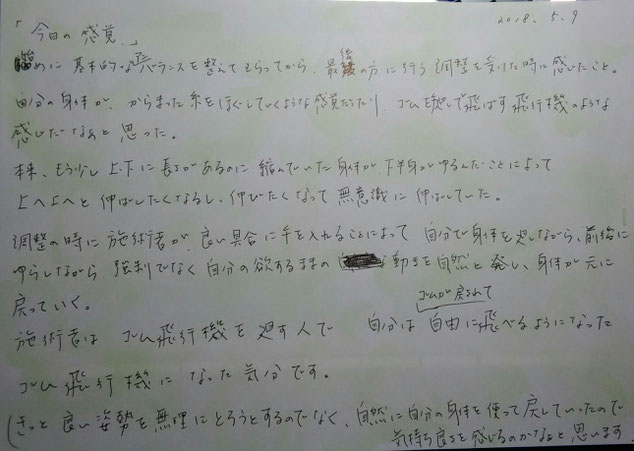 2018. 5. 9
「今日の感覚。」
始めに基本的なバランスを整えてもらってから、最後の方に行う調整を受けた時に感じたこと。
自分の身体が、からまった糸をほぐしていくような感覚だったり、ゴムを廻して飛ばす飛行機のような
感じだなぁと思った。
本来、もう少し上下に長さがあるのに縮んでいた身体が、下半身がゆるんだことによって
上へ上へと伸ばしたくなるし、伸びたくなって無意識に伸ばしていた。
調整の時に施術者が、良い具合に手を入れることによって自分で身体を廻しながら、前後に
ゆらしながら強制でなく自分の欲するままの動きを自然と発し、身体が元に
戻っていく。
ゴムが戻されて
施術者はゴム飛行機を廻す人で 自分は自由に飛べるようになった
ゴム飛行機になった気分です。
(きっと良い姿勢を無理にとろうとするのでなく、自然に自分の身体を使って戻していったので
気持ち良さを感じるのかなぁと思います